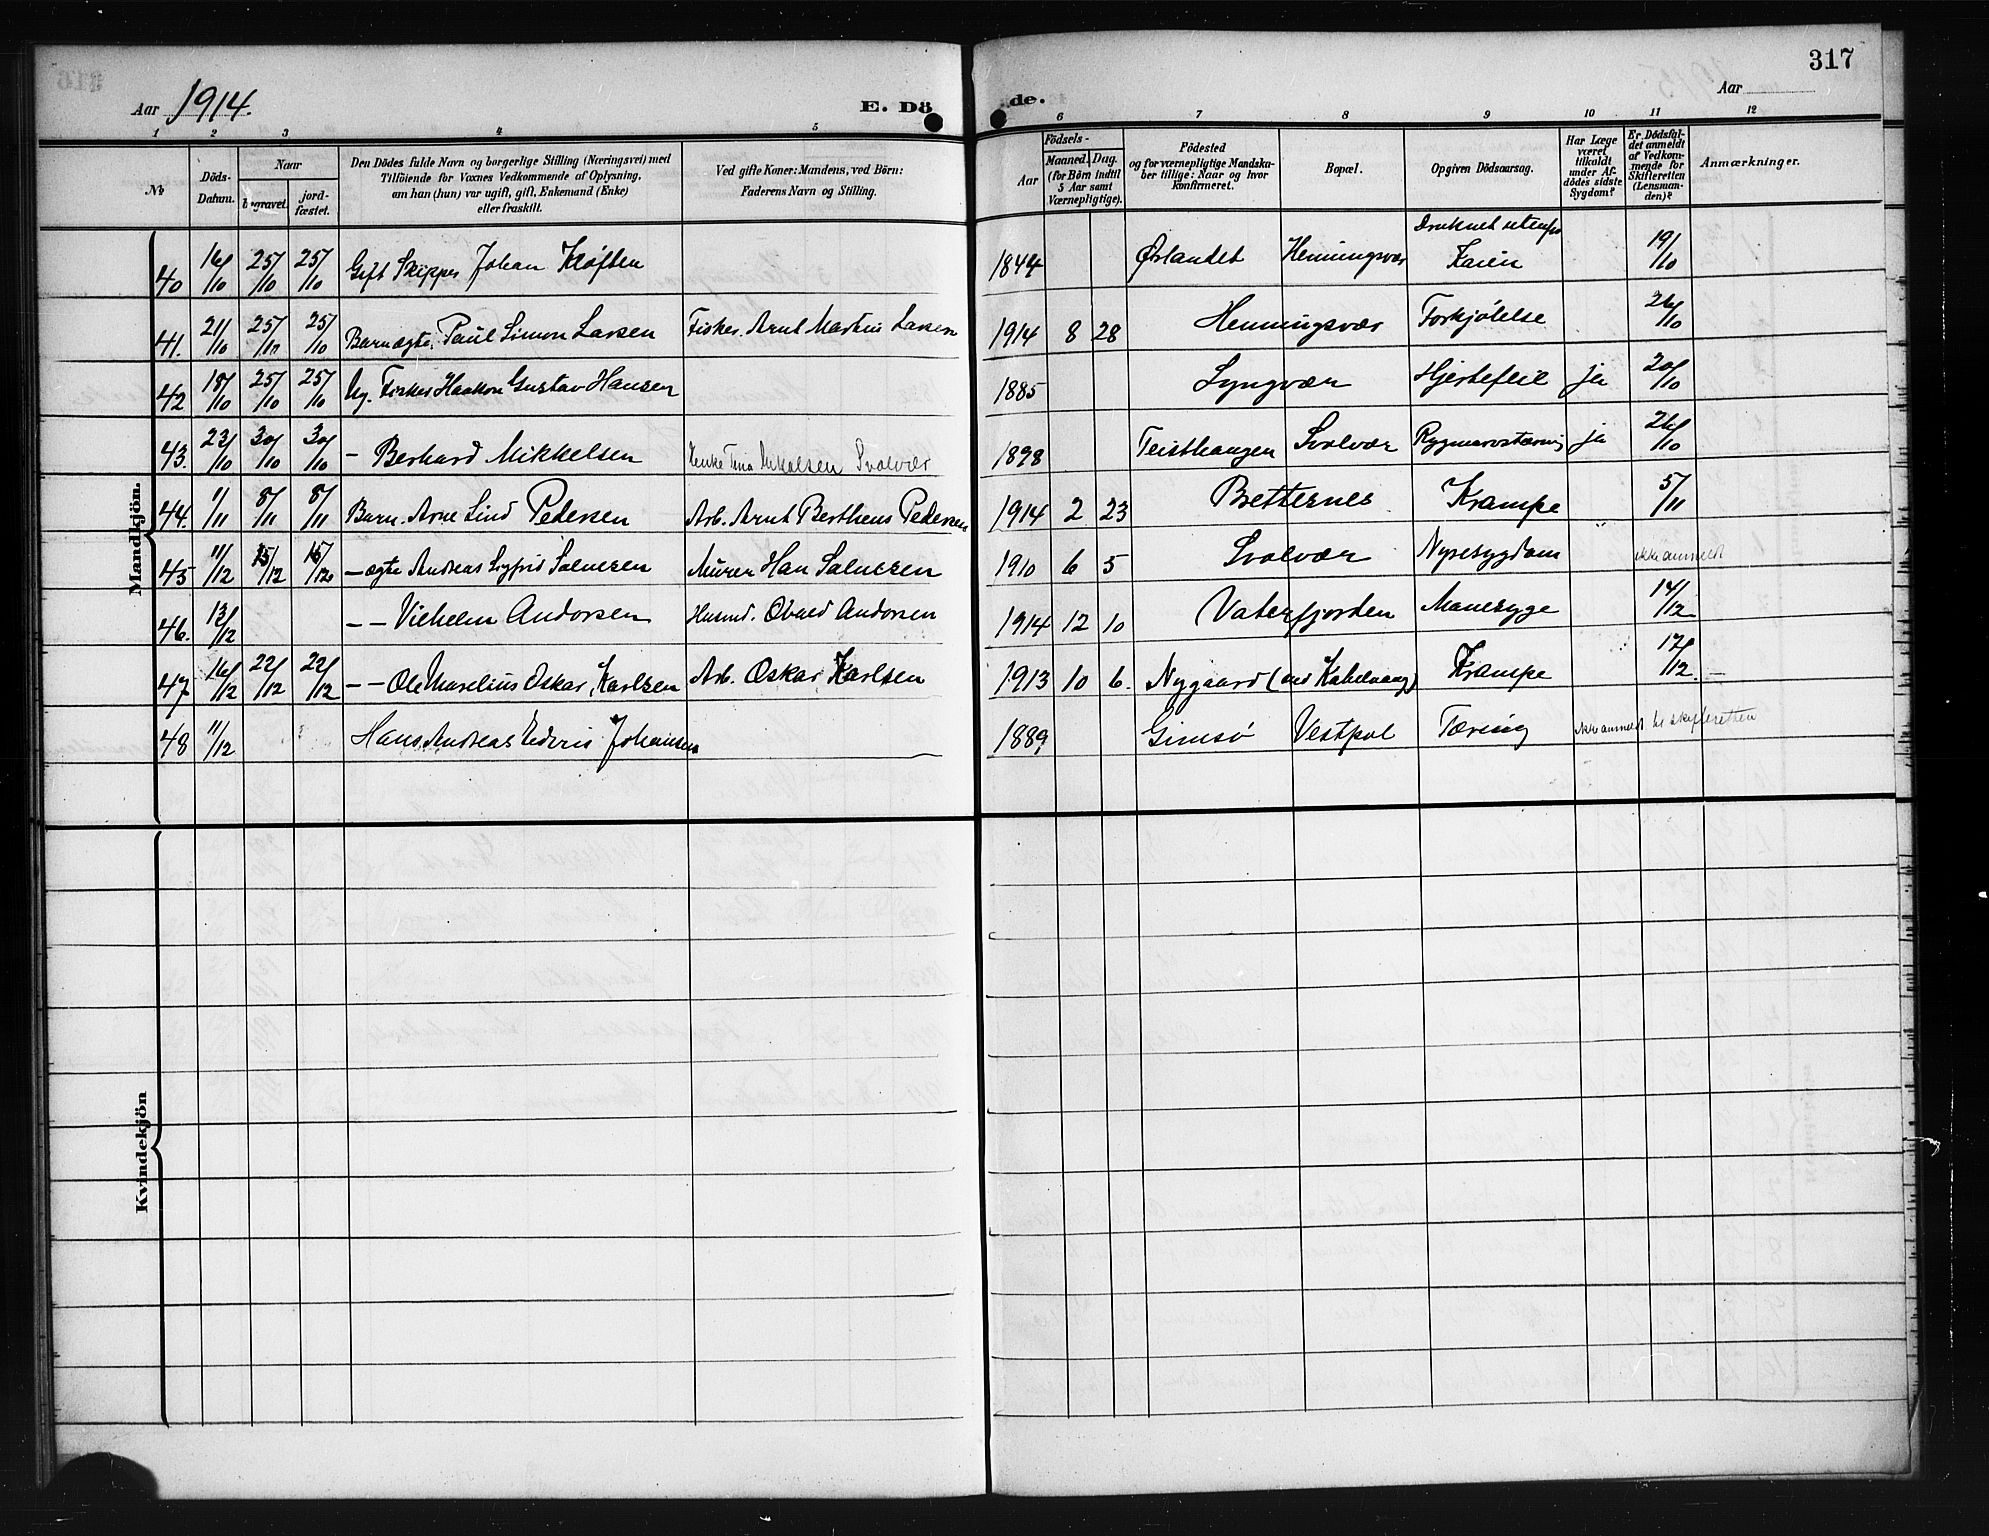 317
Aar 1914. E. Dö
de. Aar
1 2 3 4 5 6 7 8 9 10 11 12
No
Döds-Datum.
Naar
begravet.
jordfæstet.
Den Dödes fulde Navn og borgerlige Stilling (Næringsvei) med
Tilföiende for Voxnes Vedkommende af Oplysning,
om han (hun) var ugift, gift, Enkemand (Enke)
eller fraskilt.
Ved gifte Koner: Mandens, ved Börn:
Faderens Navn og Stilling.
Födsels-
Aar
Maaned. Dag.
(for Börn indtil
5 Aar samt
Værnepligtige).
Födested
og for værnepligtige Mandska-
ber tillige: Naar og hvor
konfirmeret.
Bopæl.
Opgiven Dödsaarsag.
Har Læge
været
tilkaldt
under Af-
dödes sidste
Sygdom?
Er Dödsfal-
det anmeldt
af Vedkom-
mende for
Skifteretten
(Lensman-
den)?
Anmærkninger.
Mandkjön.
40 16/10 25/10 25/10 Gift Skipper Johan Kløften 1844 Ørlandet Henningsvær Druknet utenfor Kaien 19/10
41. 21/10 25/10 25/10 Barn ægte. Paul Simon Larsen Fisker. Arnt Martin Larsen 1914 8 28 Henningsvær Forkjølelse 26/10
42 18/10 25/10 25/10 Ug. Fisker Haakon Gustav Hansen 1885 Lyngvær Hjertefeil ja 20/10
43. 23/10 30/10 30/10 – Berhard Mikkelsen Enke Tina Mikalsen Svolvær 1898 Teisthaugen Svolvær Rygmarvstæring ja 26/10
44. 1/11 8/11 8/11 Barn. Arne Lind Pedersen Arb. Arnt Bertheus Pedersen 1914 2 23 Brettesnes Krampe " 5/11
45 11/12 15/12 15/12 – ægte Andreas Sigfrid Salvesen Murer Han Salvesen 1910 6 5 Svolvær Nyresygdom ikke anmeldt
46. 13/12 – – Vilhelm Andorsen Husmd. Edvald Andorsen 1914 12 10 Vaterfjorden Mavesyge 14/12
47 16/12 22/12 22/12 – – Ole Marelius Oskar Karlsen Arb. Oskar Karlsen 1913 10 6. Nygaard (ved Kabelvaag) Krampe 17/12. –
48 11/12 Hans Andreas Edvin Johansen 1889 Gimsø Vestpol Tæring ikke anmeldt til skifteretten
Kvindekjön